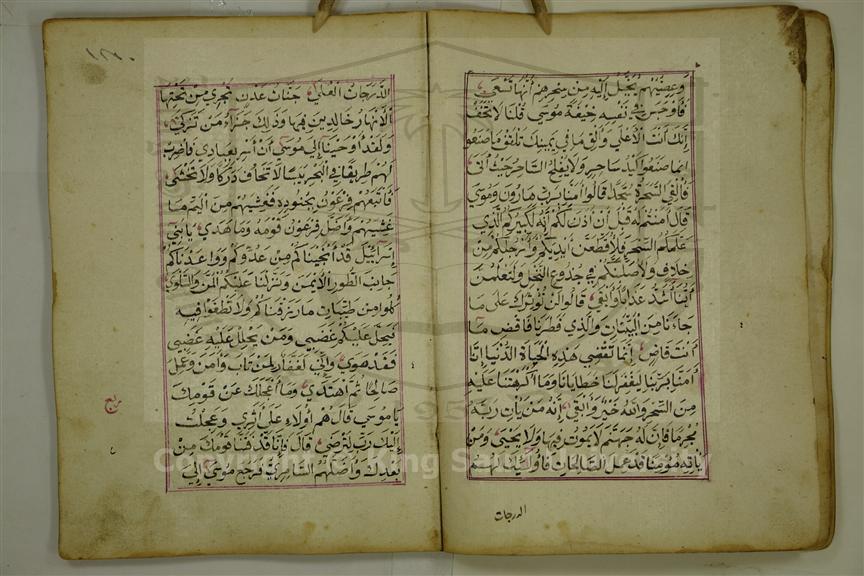 وعصيهم يخيل إليه من سحرهم أنها تسعى
فأوجس في نفسه خيفة موسى قلنا لا تخف
إنك أنت الأعلى وألق ما في يمينك تلقف ما صنعوا
إنما صنعوا كيد ساحر ولا يفلح الساحر حيث أتى
فألقي السحرة سجدا قالوا آمنا برب هارون وموسى
قال آمنتم له قبل أن آذن لكم إنه لكبيركم الذي
علمكم السحر فلأقطعن أيديكم وأرجلكم من
خلاف ولأصلبنكم في جذوع النخل ولتعلمن
أينا أشد عذابا وأبقى قالوا لن نؤثرك على ما
جاءنا من البينات والذي فطرنا فاقض ما
أنت قاض إنما تقضي هذه الحياة الدنيا إنا
آمنا بربنا ليغفر لنا خطايانا وما أكرهتنا عليه
من السحر والله خير وأبقى إنه من يأت ربه
مجرما فإن له جهنم لا يموت فيها ولا يحيى ومن
يأته مؤمنا قد عمل الصالحات فأولئك لهم
الدرجات
١٣٠
الدرجات العلى جنات عدن تجري من تحتها
الأنهار خالدين فيها وذلك جزاء من تزكى
ولقد أوحينا إلى موسى أن أسر بعبادي فاضرب
لهم طريقا في البحر يبسا لا تخاف دركا ولا تخشى
فأتبعهم فرعون بجنوده فغشيهم من اليم ما
غشيهم وأضل فرعون قومه وما هدى يا بني
إسرائيل قد أنجيناكم من عدوكم وواعدناكم
جانب الطور الأيمن ونزلنا عليكم المن والسلوى
كلوا من طيبات ما رزقناكم ولا تطغوا فيه
فيحل عليكم غضبي ومن يحلل عليه غضبي
فقد هوى وإني لغفار لمن تاب وآمن وعمل
صالحا ثم اهتدى وما أعجلك عن قومك
يا موسى قال هم أولاء على أثري وعجلت
إليك رب لترضى قال فإنا قد فتنا قومك من
بعدك وأضلهم السامري فرجع موسى إلى
ربع
Copyright © King Saud University